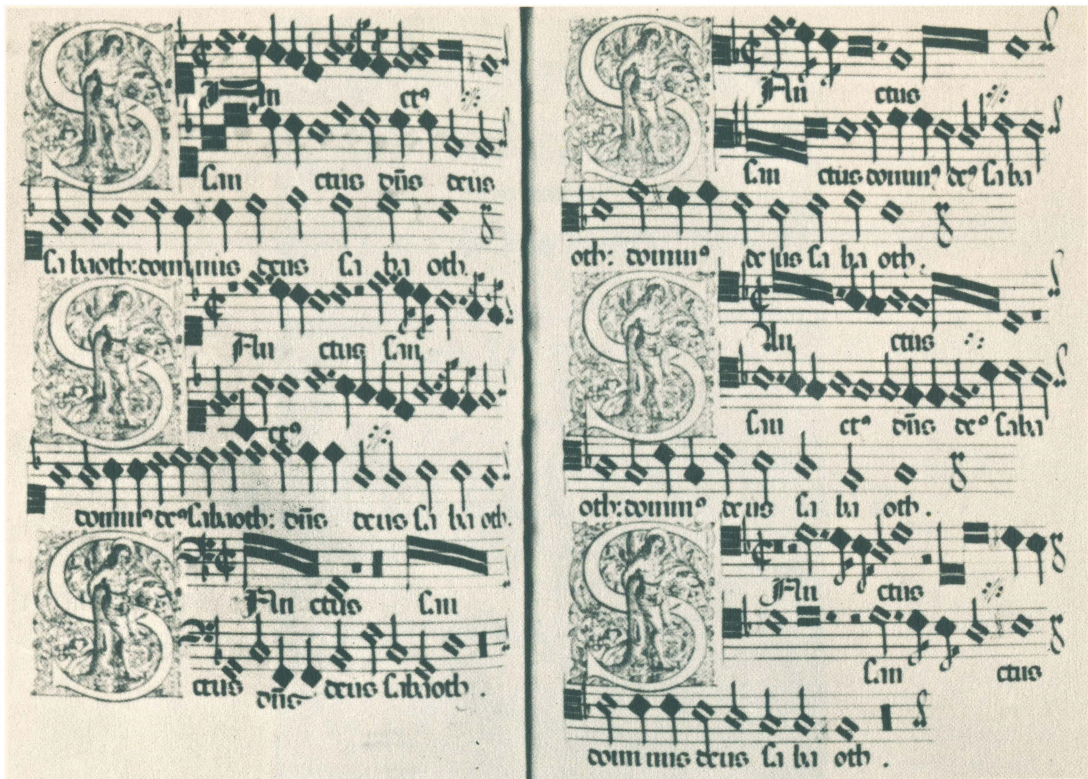 San ctꝰ
San ctus dñs deus
Sa baoth: dominus deus Sa ba oth.
San ctus San
ctꝰ
dominꝰ deꝰ Sabaoth: dñs deus Sa ba oth.
San ctus San
ctus dñs deus Sabaoth.
San ctus
San ctus dominꝰ deꝰ Saba
oth: dominꝰ deus Sa ba oth.
San ctus
San ctꝰ dñs deꝰ Saba
oth: dominꝰ deus Sa ba oth.
San ctus
San ctus
dominus deus Sa ba oth.